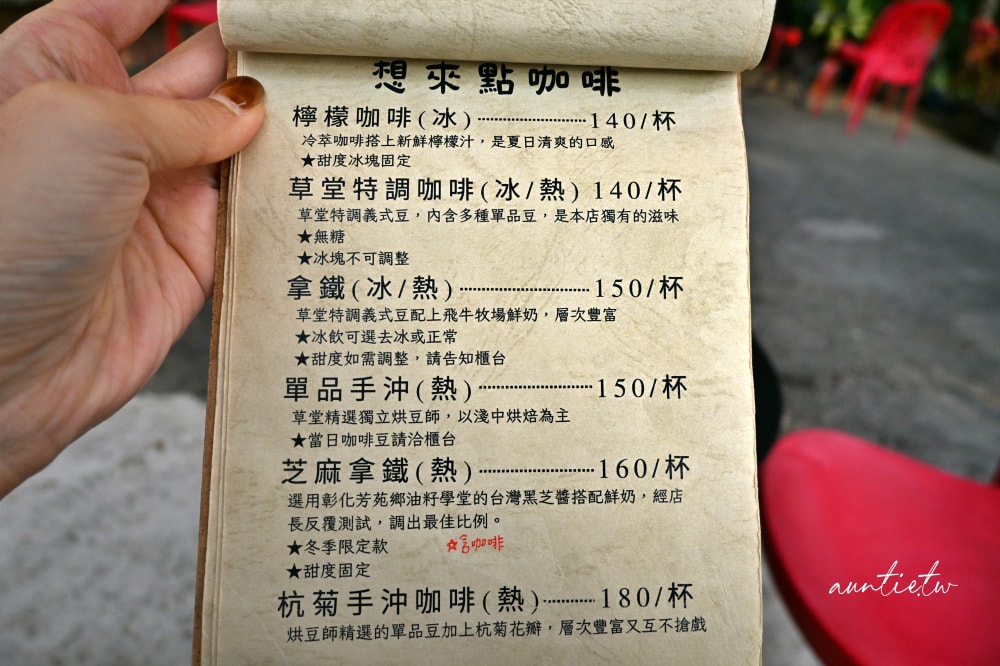 想來點咖啡
檸檬咖啡(冰)┈┈┈┈140/杯
冷萃咖啡搭上新鮮檸檬汁，是夏日清爽的口感
★甜度冰塊固定
草堂特調咖啡(冰/熱) 140/杯
草堂特調義式豆，內含多種單品豆，是本店獨有的滋味
★無糖
★冰塊不可調整
拿鐵(冰/熱)┈┈┈┈150/杯
草堂特調義式豆配上飛牛牧場鮮奶，層次豐富
★冰飲可選去冰或正常
★甜度如需調整，請告知櫃台
單品手沖(熱)┈┈┈┈150/杯
草堂精選獨立烘豆師，以淺中烘焙為主
★當日咖啡豆請洽櫃台
芝麻拿鐵(熱)┈┈┈┈160/杯
選用彰化芳苑鄉油籽學堂的台灣黑芝醬搭配鮮奶，經店
長反覆測試，調出最佳比例。
★冬季限定款 ☆含咖啡
★甜度固定
杭菊手沖咖啡(熱)┈┈180/杯
烘豆師精選的單品豆加上杭菊花瓣，層次豐富又互不搶戲
auntie.tw